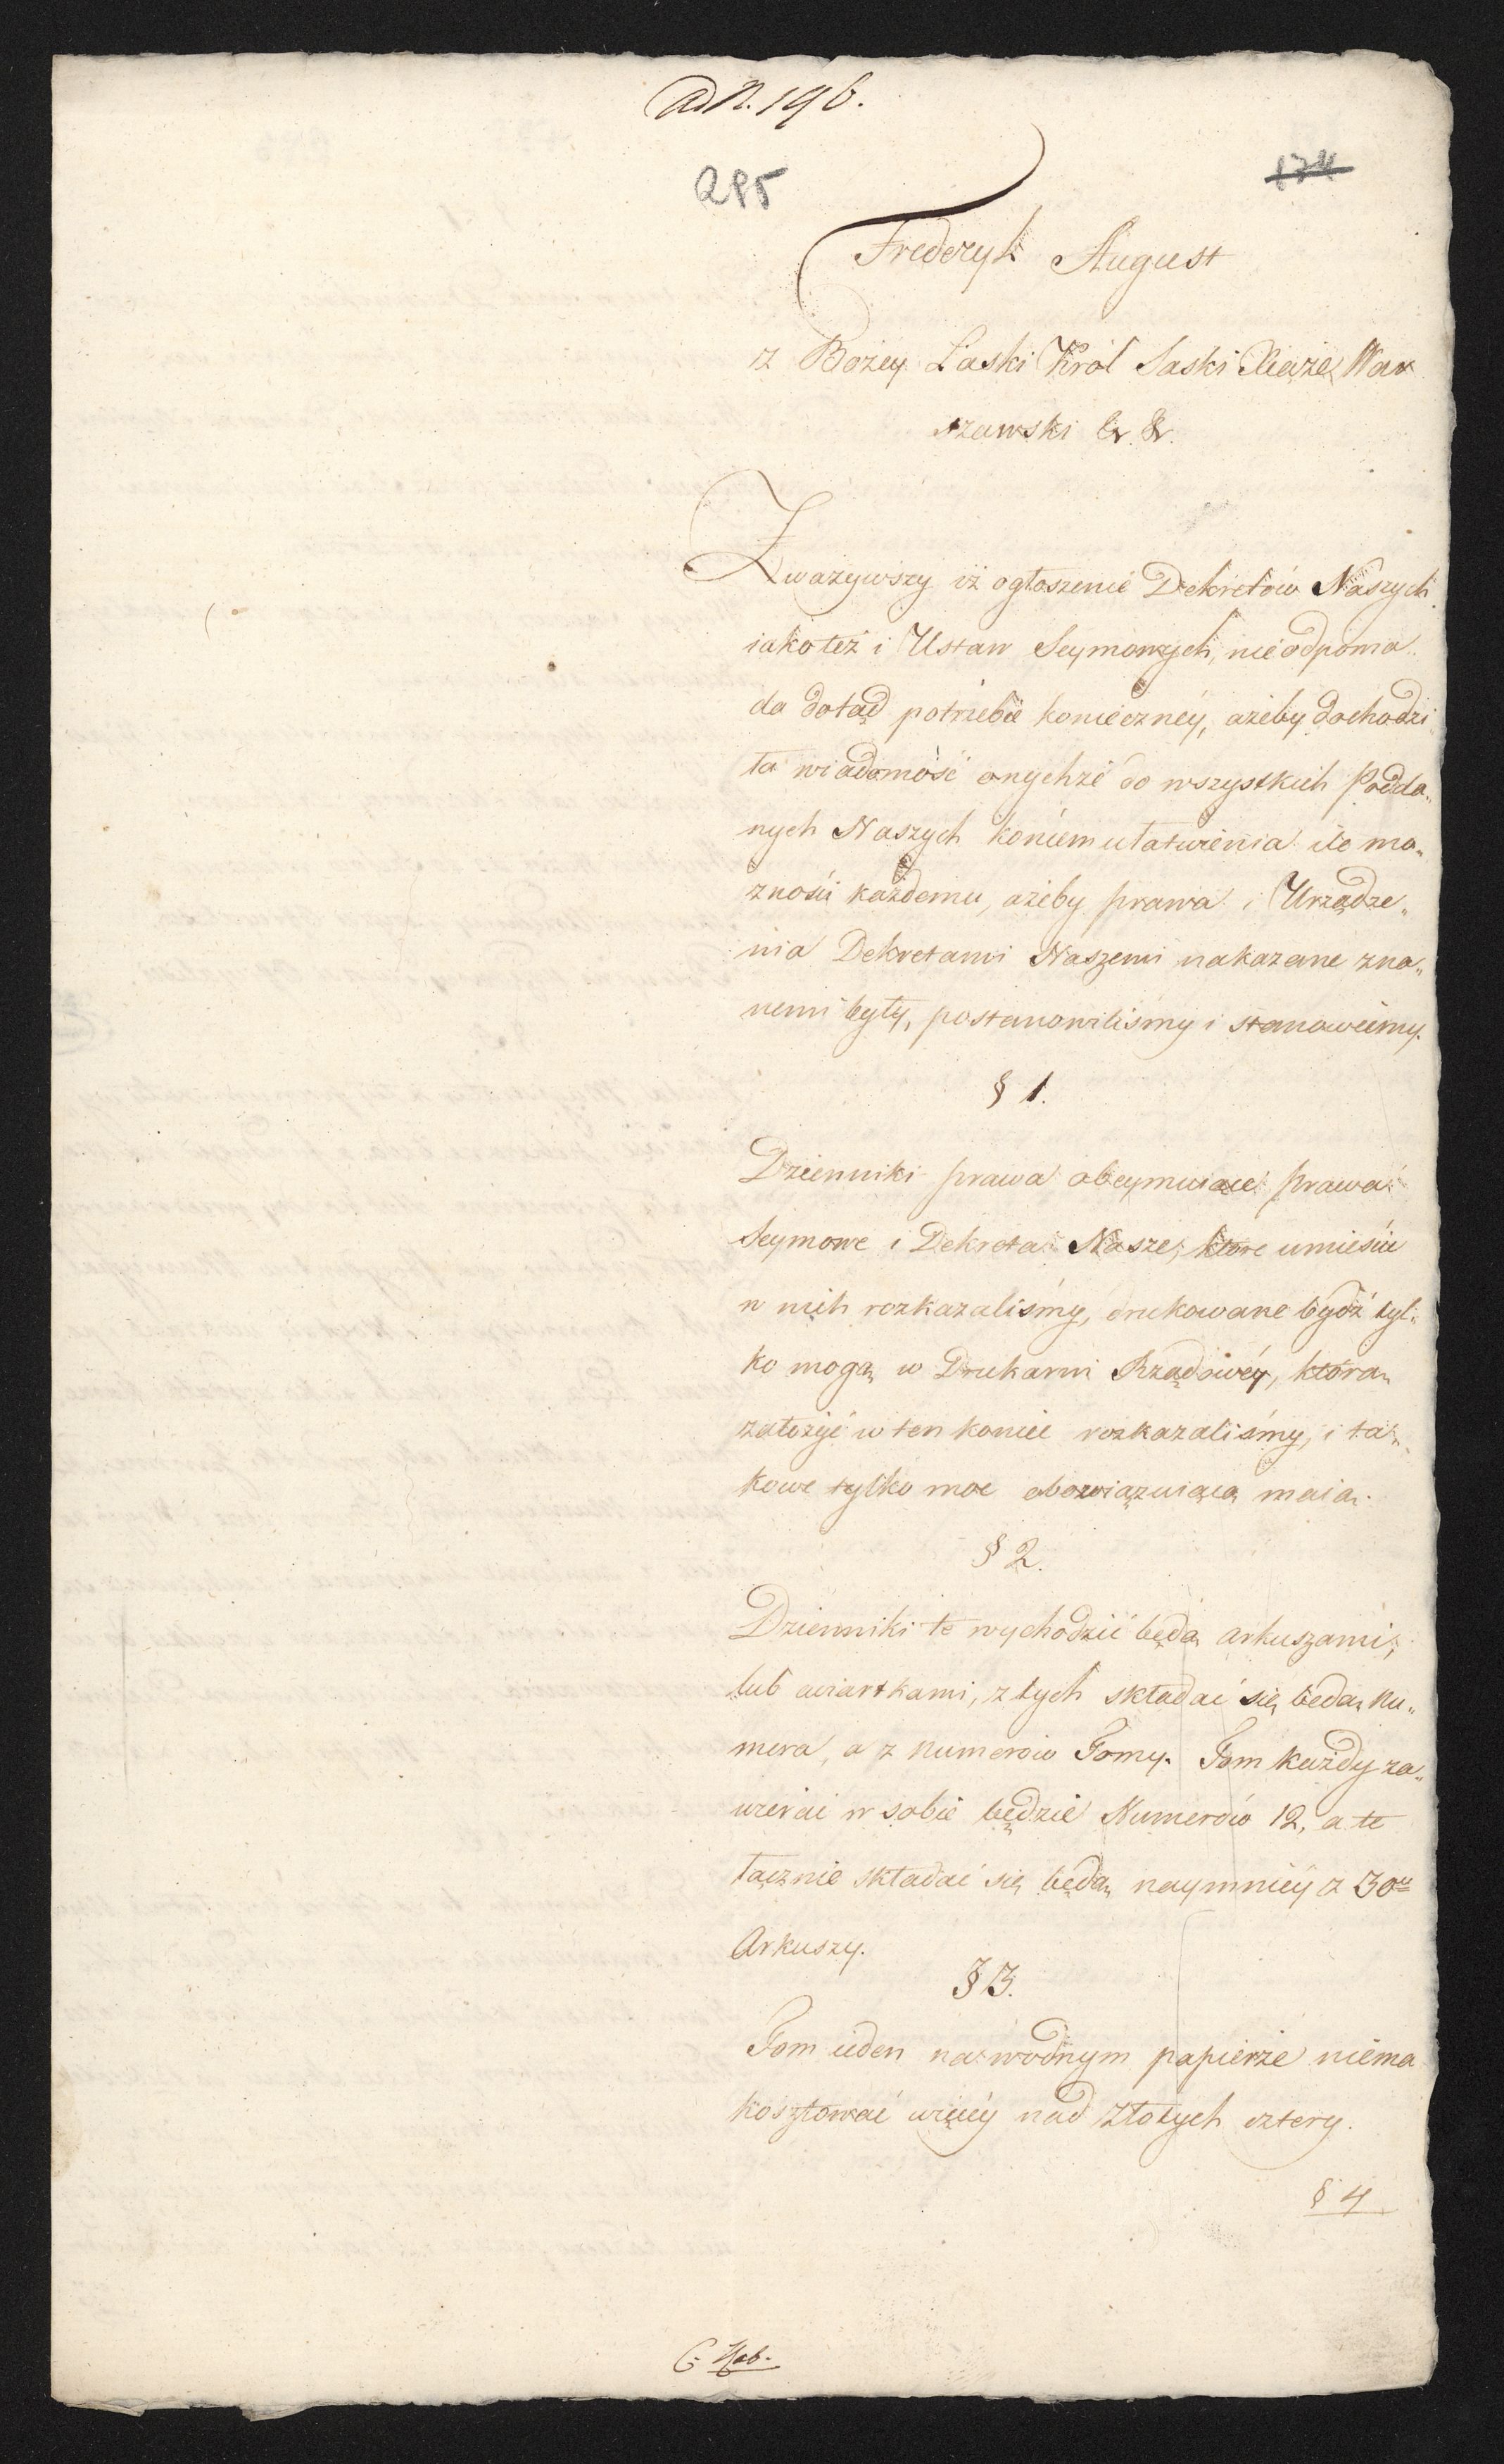 ad N. 196.
285
174
Frederyk August
z Bożey Łaski Król Saski Xiąże War
szawski &. &.
Zważywszy iż ogłoszenie Dekretów Naszych
iako też i Ustaw Seymowych, nieodpowia„
da dotąd potrzebie konieczney, ażeby dochodzi„
ła wiadomość onychże do wszystkich Podda„
nych Naszych końcem ułatwienia ile mo„
żności każdemu, ażeby prawa i Urządze„
nia Dekretami Naszemi nakazane zna„
nemi były, postanowiliśmy i stanowiemy.
§ 1.
Dzienniki prawa obeymuiące prawa
Seymowe i Dekreta Nasze, które umieście
w nich rozkazaliśmy, drukowane bydź tyl„
ko mogą w Drukarni Rządowéy, którą
założyć w ten koniec rozkazaliśmy, i ta„
kowe tylko moc obowiązuiącą maią.
§ 2.
Dzienniki te wychodzić będą arkuszami,
lub ćwiartkami, z tych składać się będą Nu„
mera, a z numerów Tomy. Tom każdy za„
wierać w sobie będzie Numerów 12, a te
łącznie składać się będą naymniéy z 30u
Arkuszy.
§ 3.
Tom ieden na wodnym papierze niema
kosztować więcéy nad Złotych cztery.
§ 4